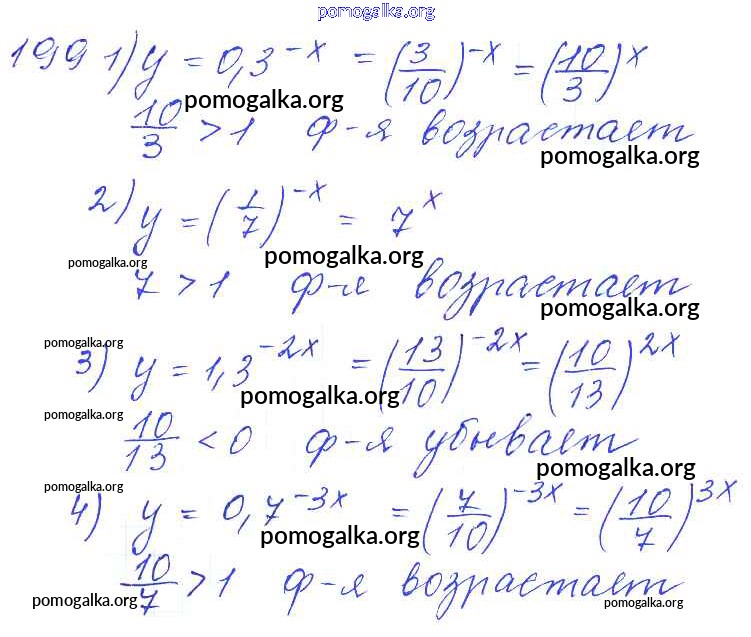 pomogalka.org
199 1) y = 0,3^{-x} = (3/10)^{-x} = (10/3)^x
pomogalka.org
10/3 > 1 ф-я возрастает
pomogalka.org
2) y = (1/7)^{-x} = 7^x
pomogalka.org pomogalka.org
7 > 1 ф-я возрастает
pomogalka.org
pomogalka.org
3) y = 1,3^{-2x} = (13/10)^{-2x} = (10/13)^{2x}
pomogalka.org
pomogalka.org
10/13 < 0 ф-я убывает
pomogalka.org
pomogalka.org
4) y = 0,7^{-3x} = (7/10)^{-3x} = (10/7)^{3x}
pomogalka.org
10/7 > 1 ф-я возрастает
pomogalka.org pomogalka.org